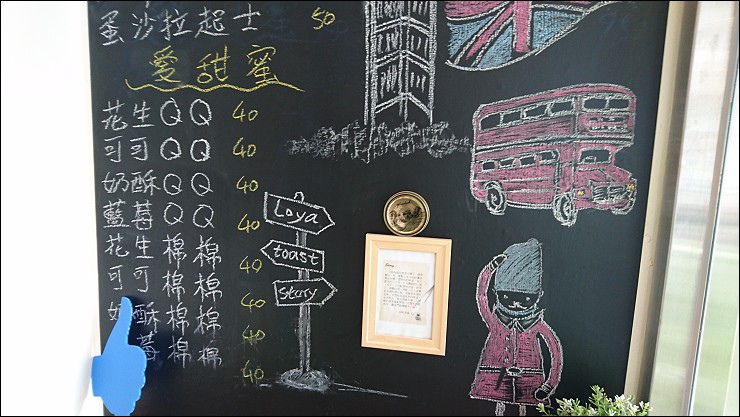 蛋沙拉起士 50
愛甜蜜
花生QQ 40
可可QQ 40
奶酥QQ 40
藍莓QQ 40
花生棉棉 40
可可棉棉 40
奶酥棉棉 40
莓棉棉 40
Loya
toast
Story